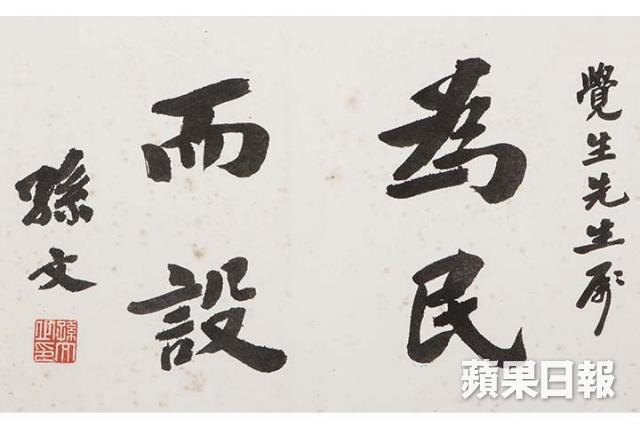 覺生先生
為民
而設
孫文
孫文之印
蘋果日報